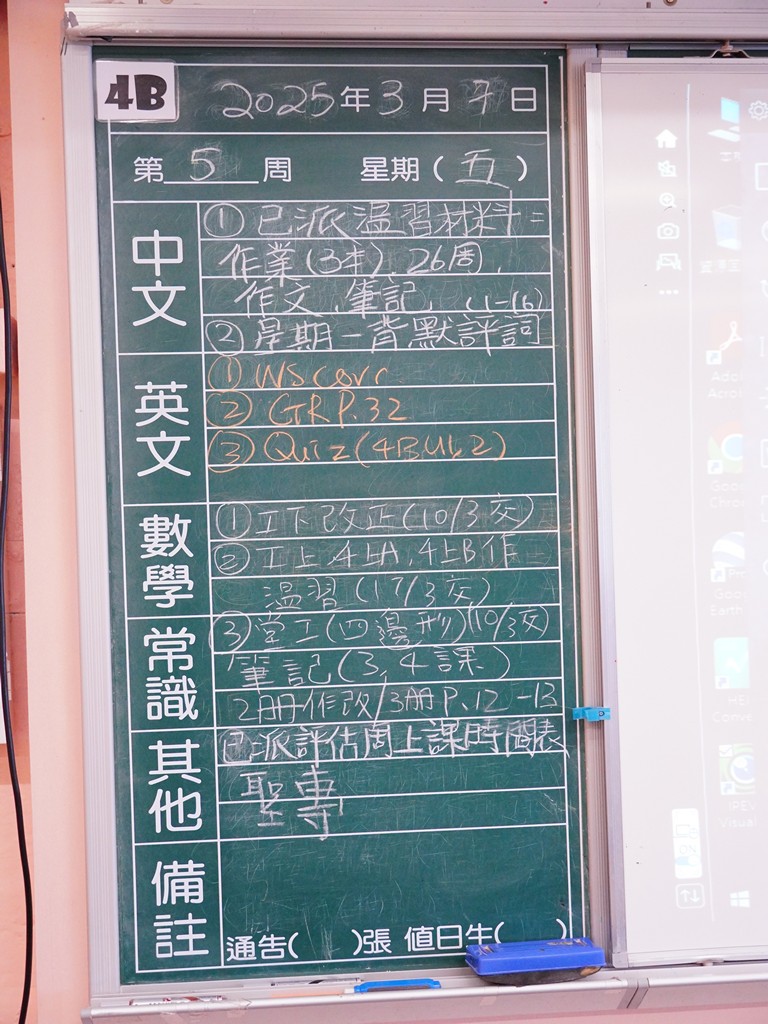 4B
2025年3月7日
第5周 星期(五)
中文
①已派溫習材料=
作業(3本), 26周,
作文, 筆記, (1-16)
②星期一背默評詞
英文
① WS corr
② GR P.32
③ Quiz (4B U1,2)
數學
①工下改正(10/3交)
②工上4上A,4上B作=
溫習(17/3交)
常識
③堂工(四邊形)(10/3交)
筆記(3,4課)
2冊作改/3冊P.12-13
其他
已派評估周上課時間表
聖專
備註
通告( )張 值日生( )